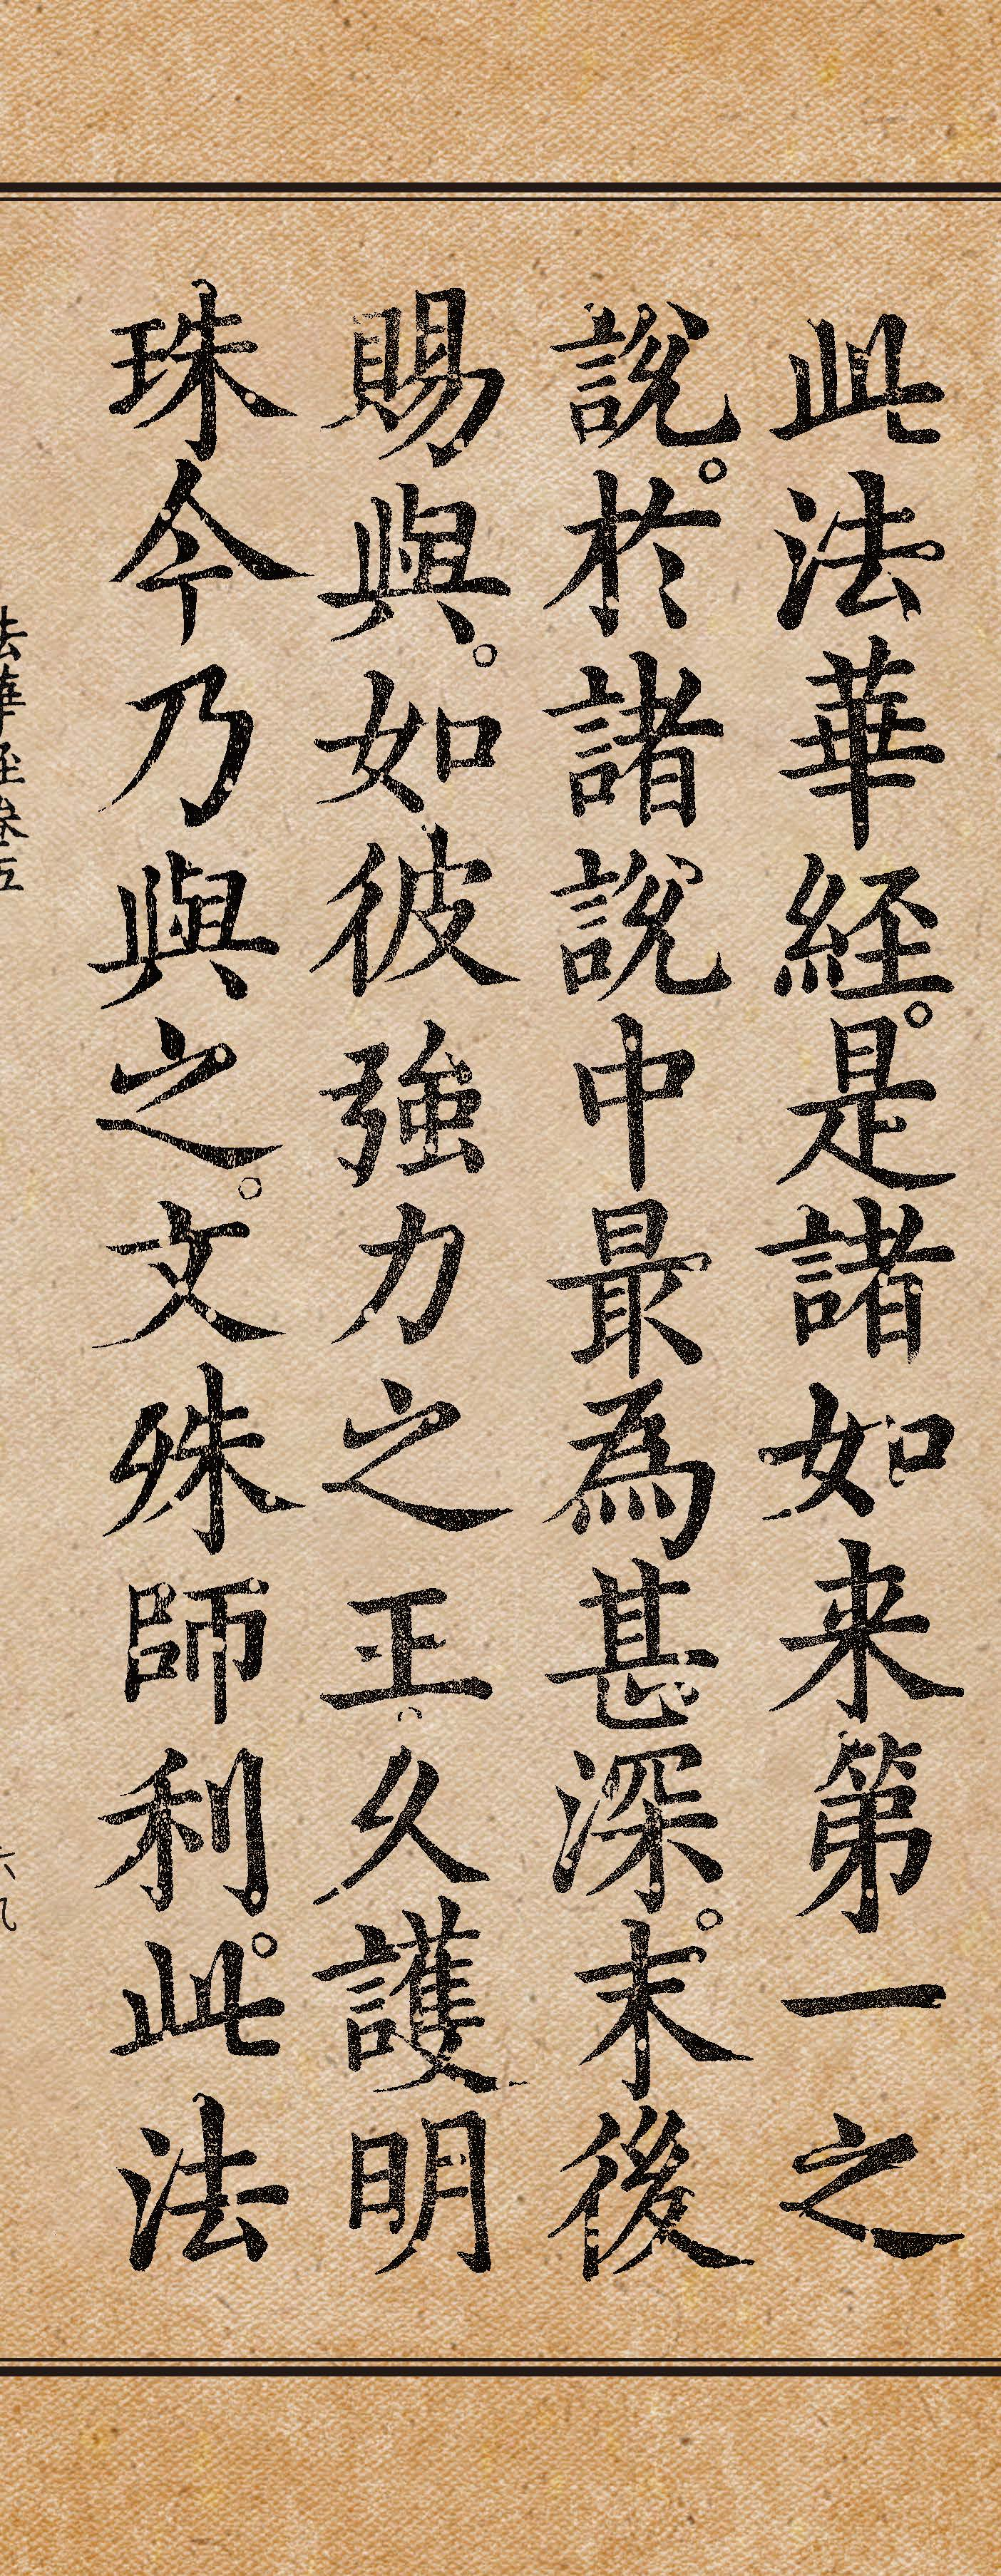 此法華経。是諸如来第一之
說。於諸說中最為甚深。末後
賜與。如彼強力之王久護明
珠今乃與之。文殊師利。此法
法華経巻五
六九